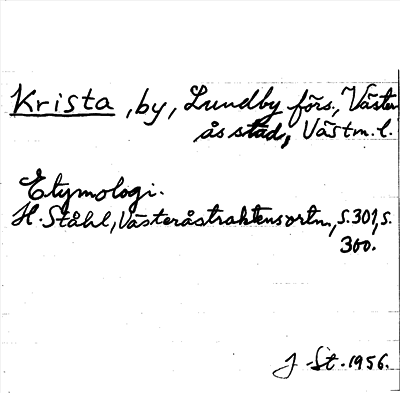 Krista, by, Lundby förs., Väster
ås stad, Västm. l.
Etymologi.
H. Ståhl, Västeråstraktens ortn., s. 301, s.
300.
J. St. 1956.